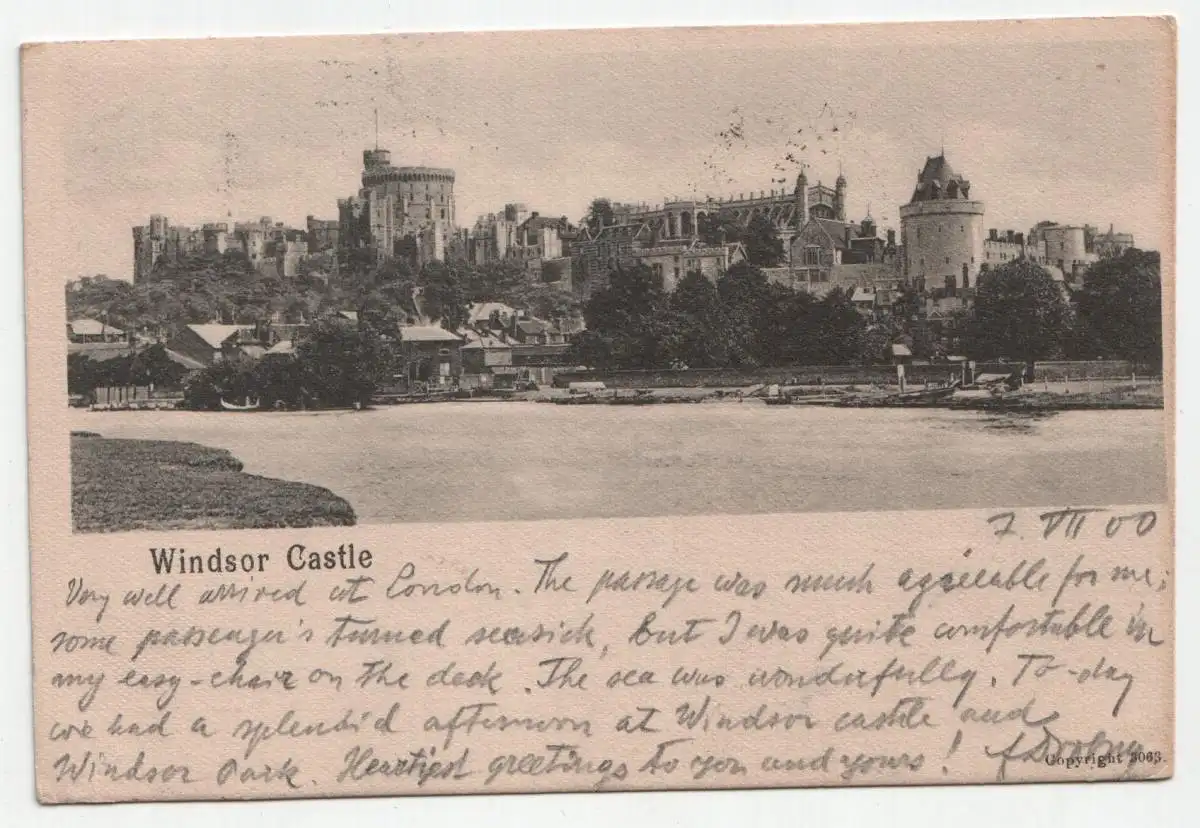 7. VII 00
Windsor Castle
Very well arrived at London. The passage was much agreeable for me;
some passenger's turned seasick, but I was quite comfortable in
my easy-chair on the deck. The sea was wonderfully. To-day
we had a splendid afternoon at Windsor castle and
Windsor Park. Heartiest greetings to you and yours!
Copyright 3063.